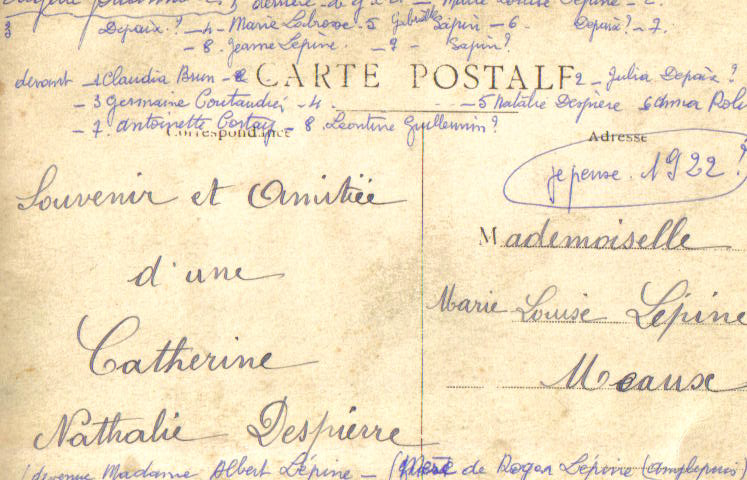 derrière de g à d — Marie Louise Lépine - 2.
3 Depaix? - 4 - Marie Labrosse - 5 Gabrielle Sapin - 6 Depaix? - 7.
- 8. Jeanne Lépine. - 9 - Sapin?
devant 1 Claudia Brun - 2 - Julia Depaix?
CARTE POSTALE
- 3 Germaine Coutaudier - 4. - 5 Natalie Despierre 6 Anna
- 7. Antoinette - 8. Léontine Guillermin?
Correspondance
Adresse
je pense. 1922?
Souvenir et Amitiée
d'une
Catherine
Nathalie Despierre
Mademoiselle
Marie Louise Lépine
Meaux
(devenue Madame Albert Lépine - (Mère de Roger Lépine (Amplepuis)